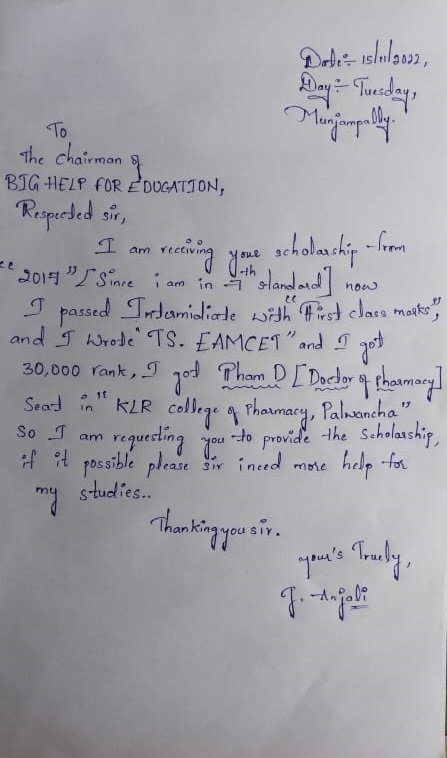 Date:- 15/11/2022,
Day:- Tuesday,
Munjampally.
To
The Chairman of
BIG HELP FOR EDUCATION,
Respected sir,
I am receiving your scholarship from
"2015" [Since i am in 7th standard] now
I passed Intermidiate with "First class marks",
and I wrote "TS. EAMCET" and I got
30,000 rank, I got Pham D [Doctor of pharmacy]
Seat in "KLR college of Pharmacy, Palwancha"
So I am requesting you to provide the Scholarship,
if it possible please sir i need more help for
my studies..
Thanking you sir.
your's Truely,
J. Anjali